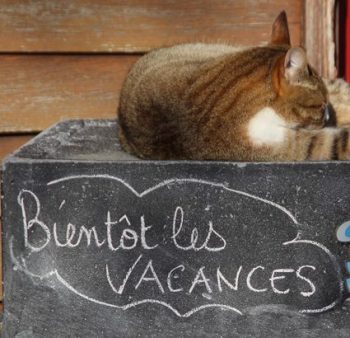 Bientôt les
VACANCES